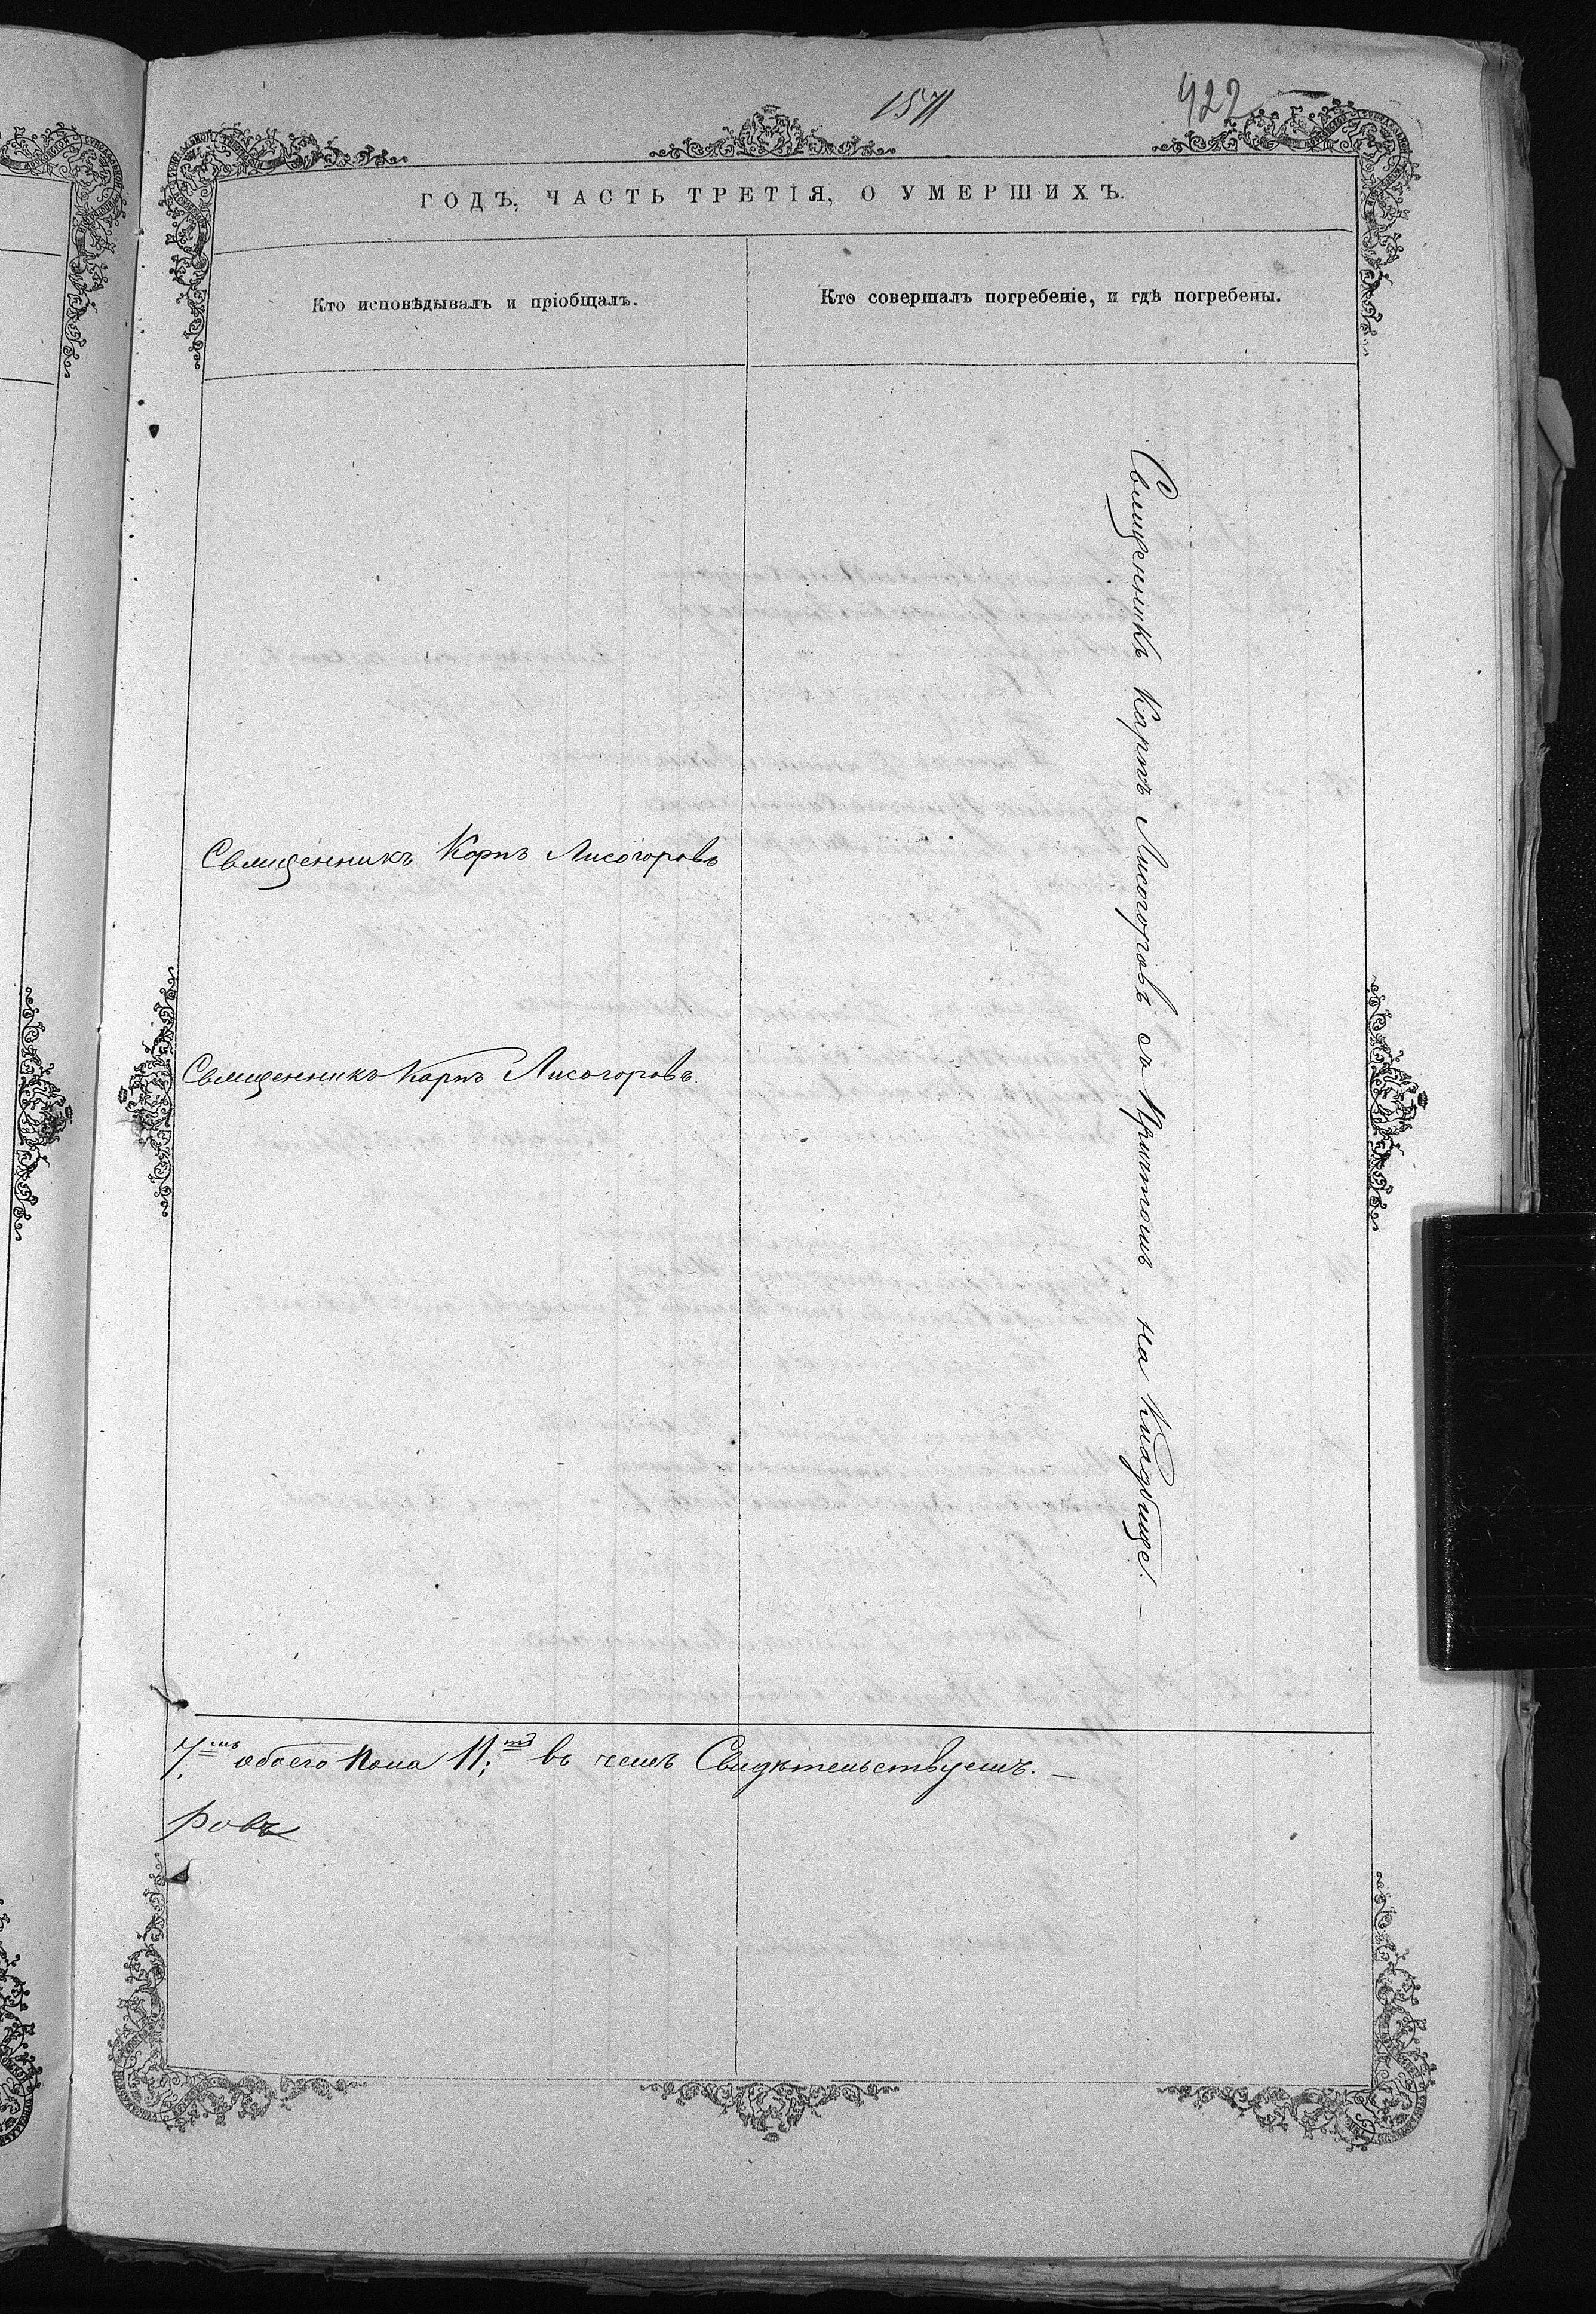 1571
422
ГОДЪ, ЧАСТЬ ТРЕТІЯ, О УМЕРШИХЪ.
Кто исповѣдывалъ и пріобщалъ.
Кто совершалъ погребеніе, и гдѣ погребены.
Священникъ Карпъ Лисогоровъ
Священникъ Карпъ Лисогоровъ
Священникъ Карпъ Лисогоровъ съ Причтомъ на Кладбище. —
7.мъ обоего пола 11;тъ въ чемъ Свидѣтельствуемъ. —
ровъ